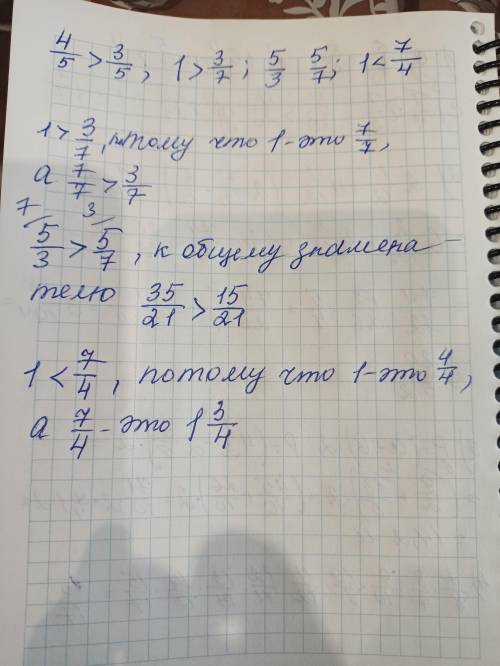 4/5 > 3/5; 1 > 3/7; 5/3 5/7; 1 < 7/4
1 > 3/7, потому что 1 - это 7/7,
а 7/7 > 3/7
7/ 3/
5/3 > 5/7, к общему знамена-
телю 35/21 > 15/21
1 < 7/4, потому что 1 - это 4/4,
а 7/4 - это 1 3/4